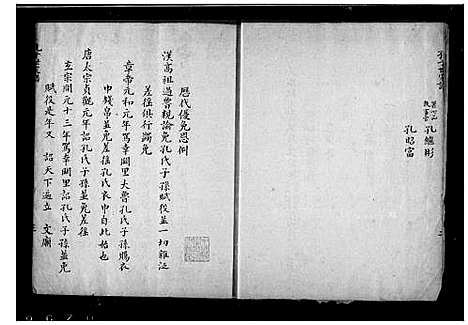 孔繼彬
孔昭富
歷代優免恩例
漢高祖過魯親諭免孔氏子孫賦役並一切雜泛
差徭俱行蠲免
章帝元和元年駕幸闕里大會孔氏子孫賜衣
巾錢帛並免差徭孔氏衣巾自此始也
唐太宗貞觀元年詔孔氏子孫並免差徭
玄宗開元十三年駕幸闕里詔孔氏子孫並免
賦役是年又 詔天下遍立 文廟